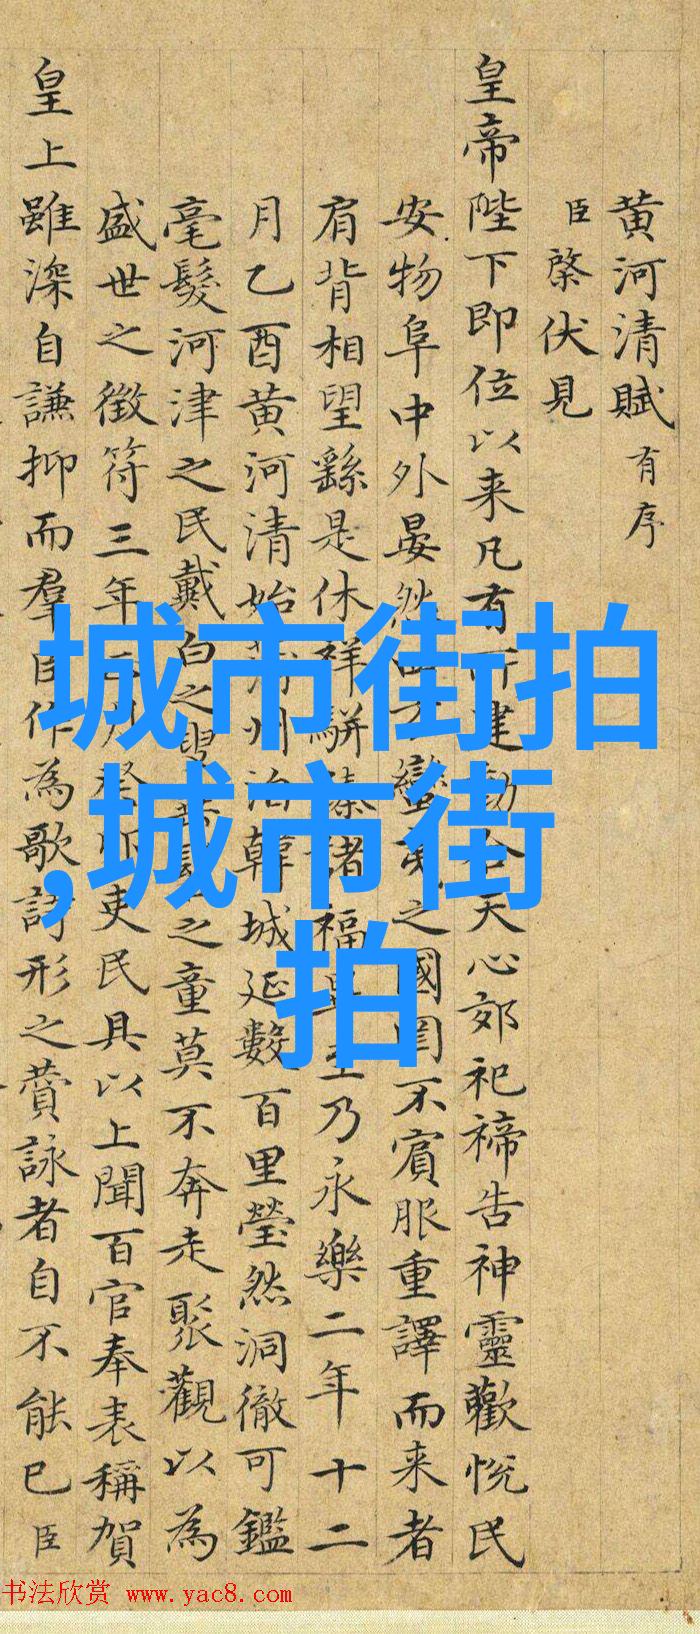 黄河清賦 有序
臣棨伏見
皇帝陛下即位以来凡有所建合天心郊祀禘告神靈歡悅民
安物阜中外晏然蠻之國罔不賔服重譯而来者
肩背相望繇是休祥駢臻諸福至乃永樂二年十二
月乙酉黄河清始州韓城延數百里瑩然洞徹可鑑
毫髮河津之民戴白之叟之童莫不奔走聚觀以為
盛世之徵符三年月吏民具以上聞百官奉表稱賀
皇上雖深自謙抑而羣臣作為歌詩形之賛詠者自不能已臣
城市街拍
,城市街
拍
书法欣赏 www.yac8.com